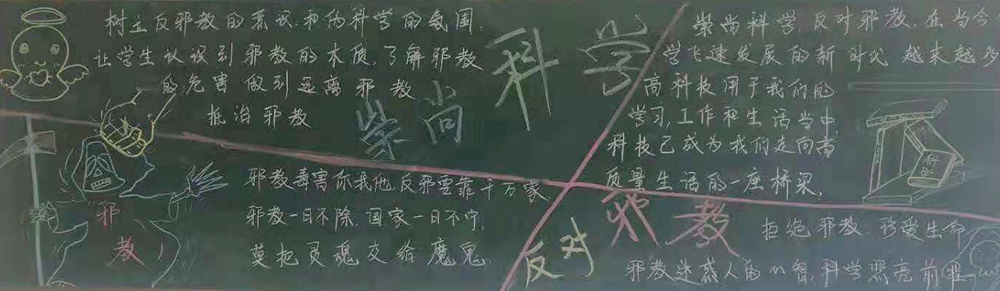 树立反邪教的意识和的科学的氛围
让学生认识到邪教的本质,了解邪教
的危害 做到远离 邪 教
抵治邪教
崇尚科学
崇尚科学,反对邪教,在当今
学飞速发展的新时代 越来越多
高科技用于我们的
学习,工作和生活当中
科技已成为我们走向高
质量生活的一座桥梁,
邪教毒害你我他,反邪要靠千万家
邪教一日不除,国家一日不宁,
莫把灵魂交给魔鬼
邪
教
反对
邪教
拒绝邪教 珍爱生命
邪教迷惑人的心智,科学照亮前程